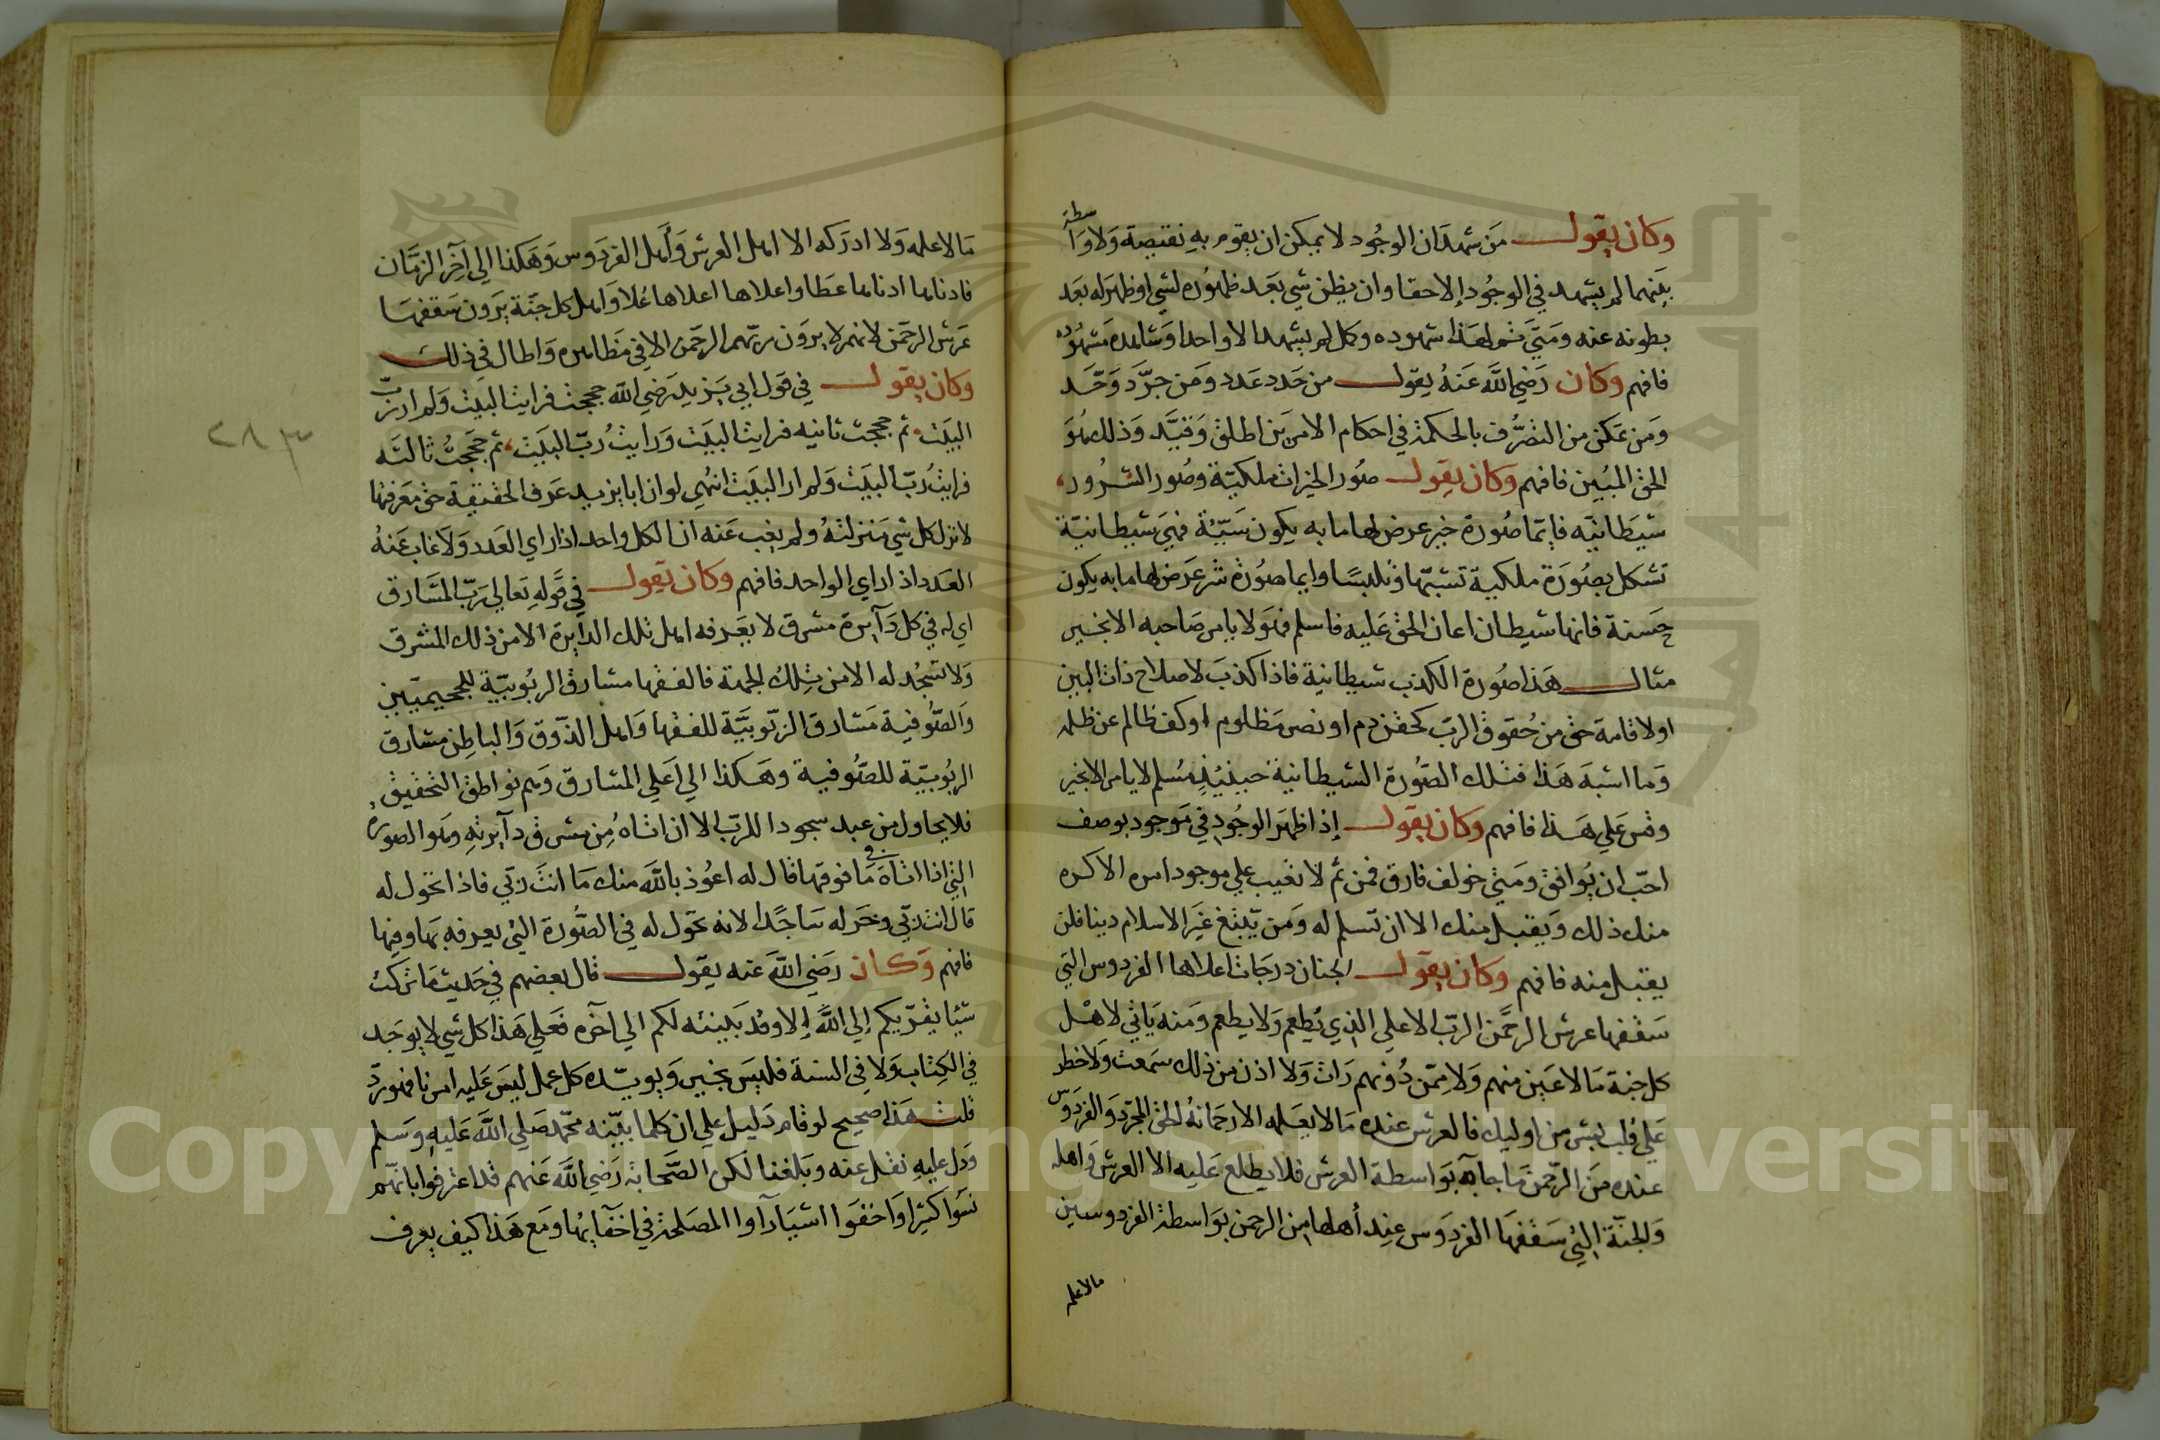 وكان يقول من شهد ان الوجود لا يمكن ان يقوم به نقيصة ولا واسطة
بينهما لم يشهد في الوجود الا حقا وان بطن شي بعد ظهوره لشي او ظهر له بعد
بطونه عنه ومتي شهد هذا شهوده وكل لم يشهد الا واحدا وشاهده مشهوده
فافهم وكان رضي الله عنه يقول من حدد عدد ومن جرد وحد
ومن تمكن من التصرف بالحكمة في احكام الامرين اطلق وقيد وذلك هو
الحق المبين فافهم وكان يقول صور الخيرات ملكية وصور الشرور
شيطانيه فايما صورة خير عرض لها ما به يكون سيئة فهي شيطانية
تشكل بصورة ملكية تشبها وتلبسا وايما صورة شر عرض لها ما به يكون
حسنة فانها شيطان اعان الحق عليه فاسلم فهو لا يامر صاحبه الا بخير
مثال هذا صورة الكذب شيطانية فاذا كذب لاصلاح ذات البين
او لاقامة حق من حقوق الرب كحقن دم او نصر مظلوم او كف ظالم عن ظلمه
وما اشبه هذا فتلك الصورة الشيطانية حينئذ مسلم لا يامر الا بخير
وقس علي هذا فافهم وكان يقول إذا ظهر الوجود في موجود بوصف
احب ان يوافق ومتي خولف فارق فمن ثم لا تغيب علي موجود امره الا كره
منك ذلك ويقبل منك الا ان تسلم له ومن يبتغ غير الاسلام دينا فلن
يقبل منه فافهم وكان يقول الجنان درجات اعلاها الفردوس التي
سقفها عرش الرحمن الرب الاعلي الذي يطعم ولا يطعم ومنه ياتي لاهل
كل جنة ما لا عين منهم ولا ممن دونهم رات ولا اذن من ذلك سمعت ولا خطر
علي قلب بشر من اوليك فالعرش عنده ما لا يعلمه الا رحمانه لحق المجرد والفردوس
عنده من الرحمن ما جا به بواسطة العرش فلا يطلع عليه الا العرش واهله
والجنة التي سقفها الفردوس عند أهلها من الرحمن بواسطة الفردوسيين
ما لا علمه
ما لا علمه ولا ادركه الا اهل العرش وأهل الفردوس وهكذا الي آخر الزمان
فادناها ادناها عطا واعلاها اعلاها علا واهل كل جنة يرون سقفها
عرش الرحمن لانهم لا يرون ربهم الرحمن الا في مظاهره واطال في ذلك
وكان يقول في قول ابي يزيد رضي الله حججت فرايت البيت ولم ار رب
البيت ثم حججت ثانيه فرايت البيت ورايت رب البيت ثم حججت ثالثه
فرايت رب البيت ولم ار البيت انتهي لو ان ابا يزيد عرف الحقيقة حق معرفتها
لانزل كل شي منزلته ولم يغب عنه ان الكل واحد اذا راي العدد ولا غاب عنه
العدد اذا راي الواحد فافهم وكان يقول في قوله تعالي رب المشارق
اي له في كل دآيرة مشرق لا يعرفه اهل تلك الدايرة الا من ذلك المشرق
ولا تسجد له الا من تلك الجهة فالفقها مشارق الربوبية للجحيميين
والصوفية مشارق الربوبية للفقها واهل الذوق والباطن مشارق
الربوبية للصوفية وهكذا الي اعلي المشارق وهم نواطق التحقيق
فلا يحاول من عبد سجودا للرب الا ان اتاه من مشرق دآيرته وهو الصوره
التي اذا اتاه في ما فوقها قال له اعوذ بالله منك ما انت ربي فاذا تحول له
قال انت ربي وخر له ساجدا لانه تحول له في الصورة التي يعرفه بها وفيها
فافهم وكان رضي الله عنه يقول قال بعضهم في حديث ما تركت
شيا يقربكم إلي الله إلا وقد بينته لكم الي اخره فعلي هذا كل شي لا يوجد
في الكتاب ولا في السنة فليس بخير ويويده كل عمل ليس عليه امرنا فهو رد
قلت هذا صحيح لو قام دليل علي ان كلما بينه محمد صلي الله عليه وسلم
ودل عليه نقل عنه وبلغنا لكن الصحابة رضي الله عنهم قد اعترفوا بانهم
نسوا كثيرا واخفوا اشيا رآوا المصلحة في اخفآيها ومع هذا كيف يعرف
٢٨٣
Copyright © King Saud University